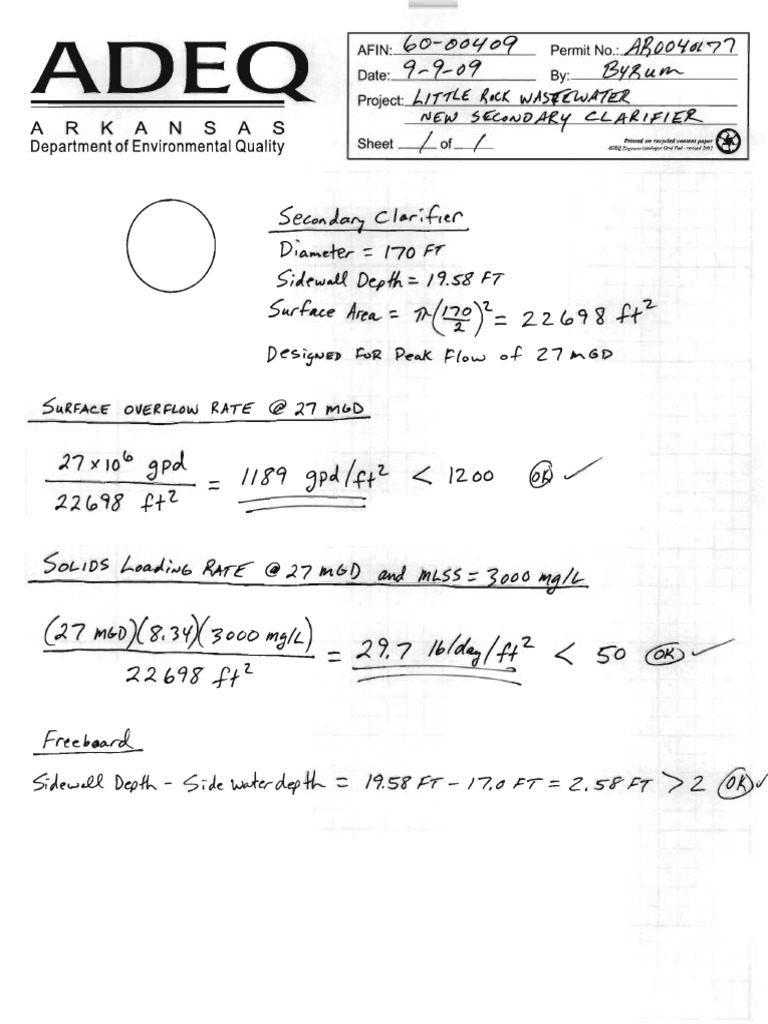 ADEQ
ARKANSAS
Department of Environmental Quality
AFIN: 60-00409 Permit No.: AR0040177
Date: 9-9-09 By: Byrum
Project: LITTLE ROCK WASTEWATER
NEW SECONDARY CLARIFIER
Sheet 1 of 1
Printed on recycled content paper
Secondary Clarifier
Diameter = 170 FT
Sidewall Depth = 19.58 FT
Surface Area = π(170/2)² = 22698 ft²
DESIGNED FOR Peak Flow of 27 MGD
SURFACE OVERFLOW RATE @ 27 MGD
27×10⁶ gpd / 22698 ft² = 1189 gpd/ft² < 1200 OK ✓
SOLIDS LoadiNG RATE @ 27 MGD and MLSS = 3000 mg/L
(27 MGD)(8.34)(3000 mg/L) / 22698 ft² = 29.7 lb/day/ft² < 50 OK ✓
Freeboard
Sidewall Depth - Side water depth = 19.58 FT - 17.0 FT = 2.58 FT > 2 OK ✓